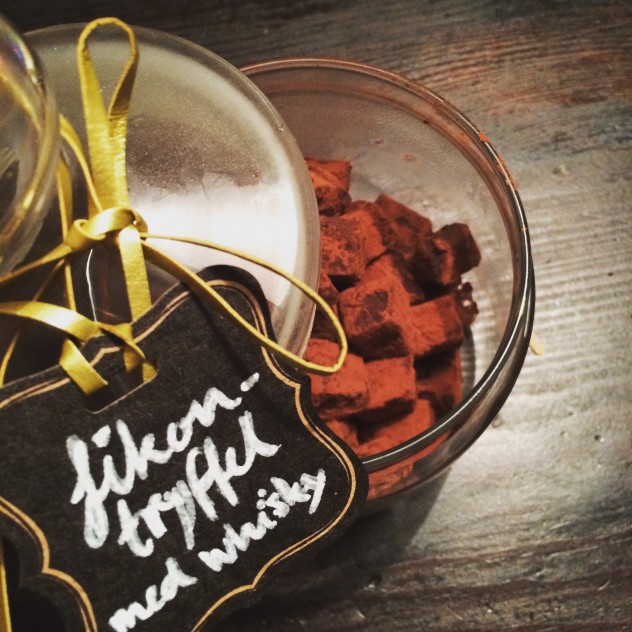 fikon-
tryffel
med whisky